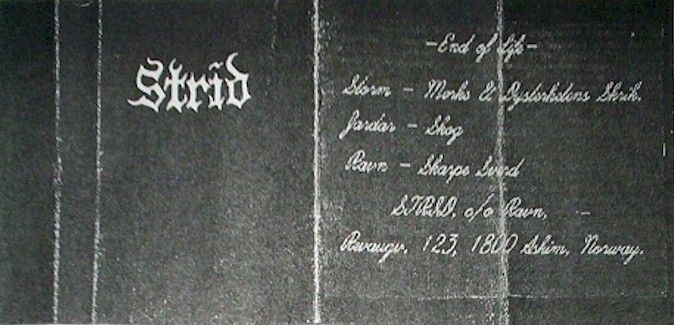 Strid
-End of Life-
Storm - Mørke & Dysterhetens Skrik.
Jardar - Skog
Ravn - Skarpe Sverd
STRID, c/o Ravn, -
Revaugv. 123, 1800 Askim, Norway.